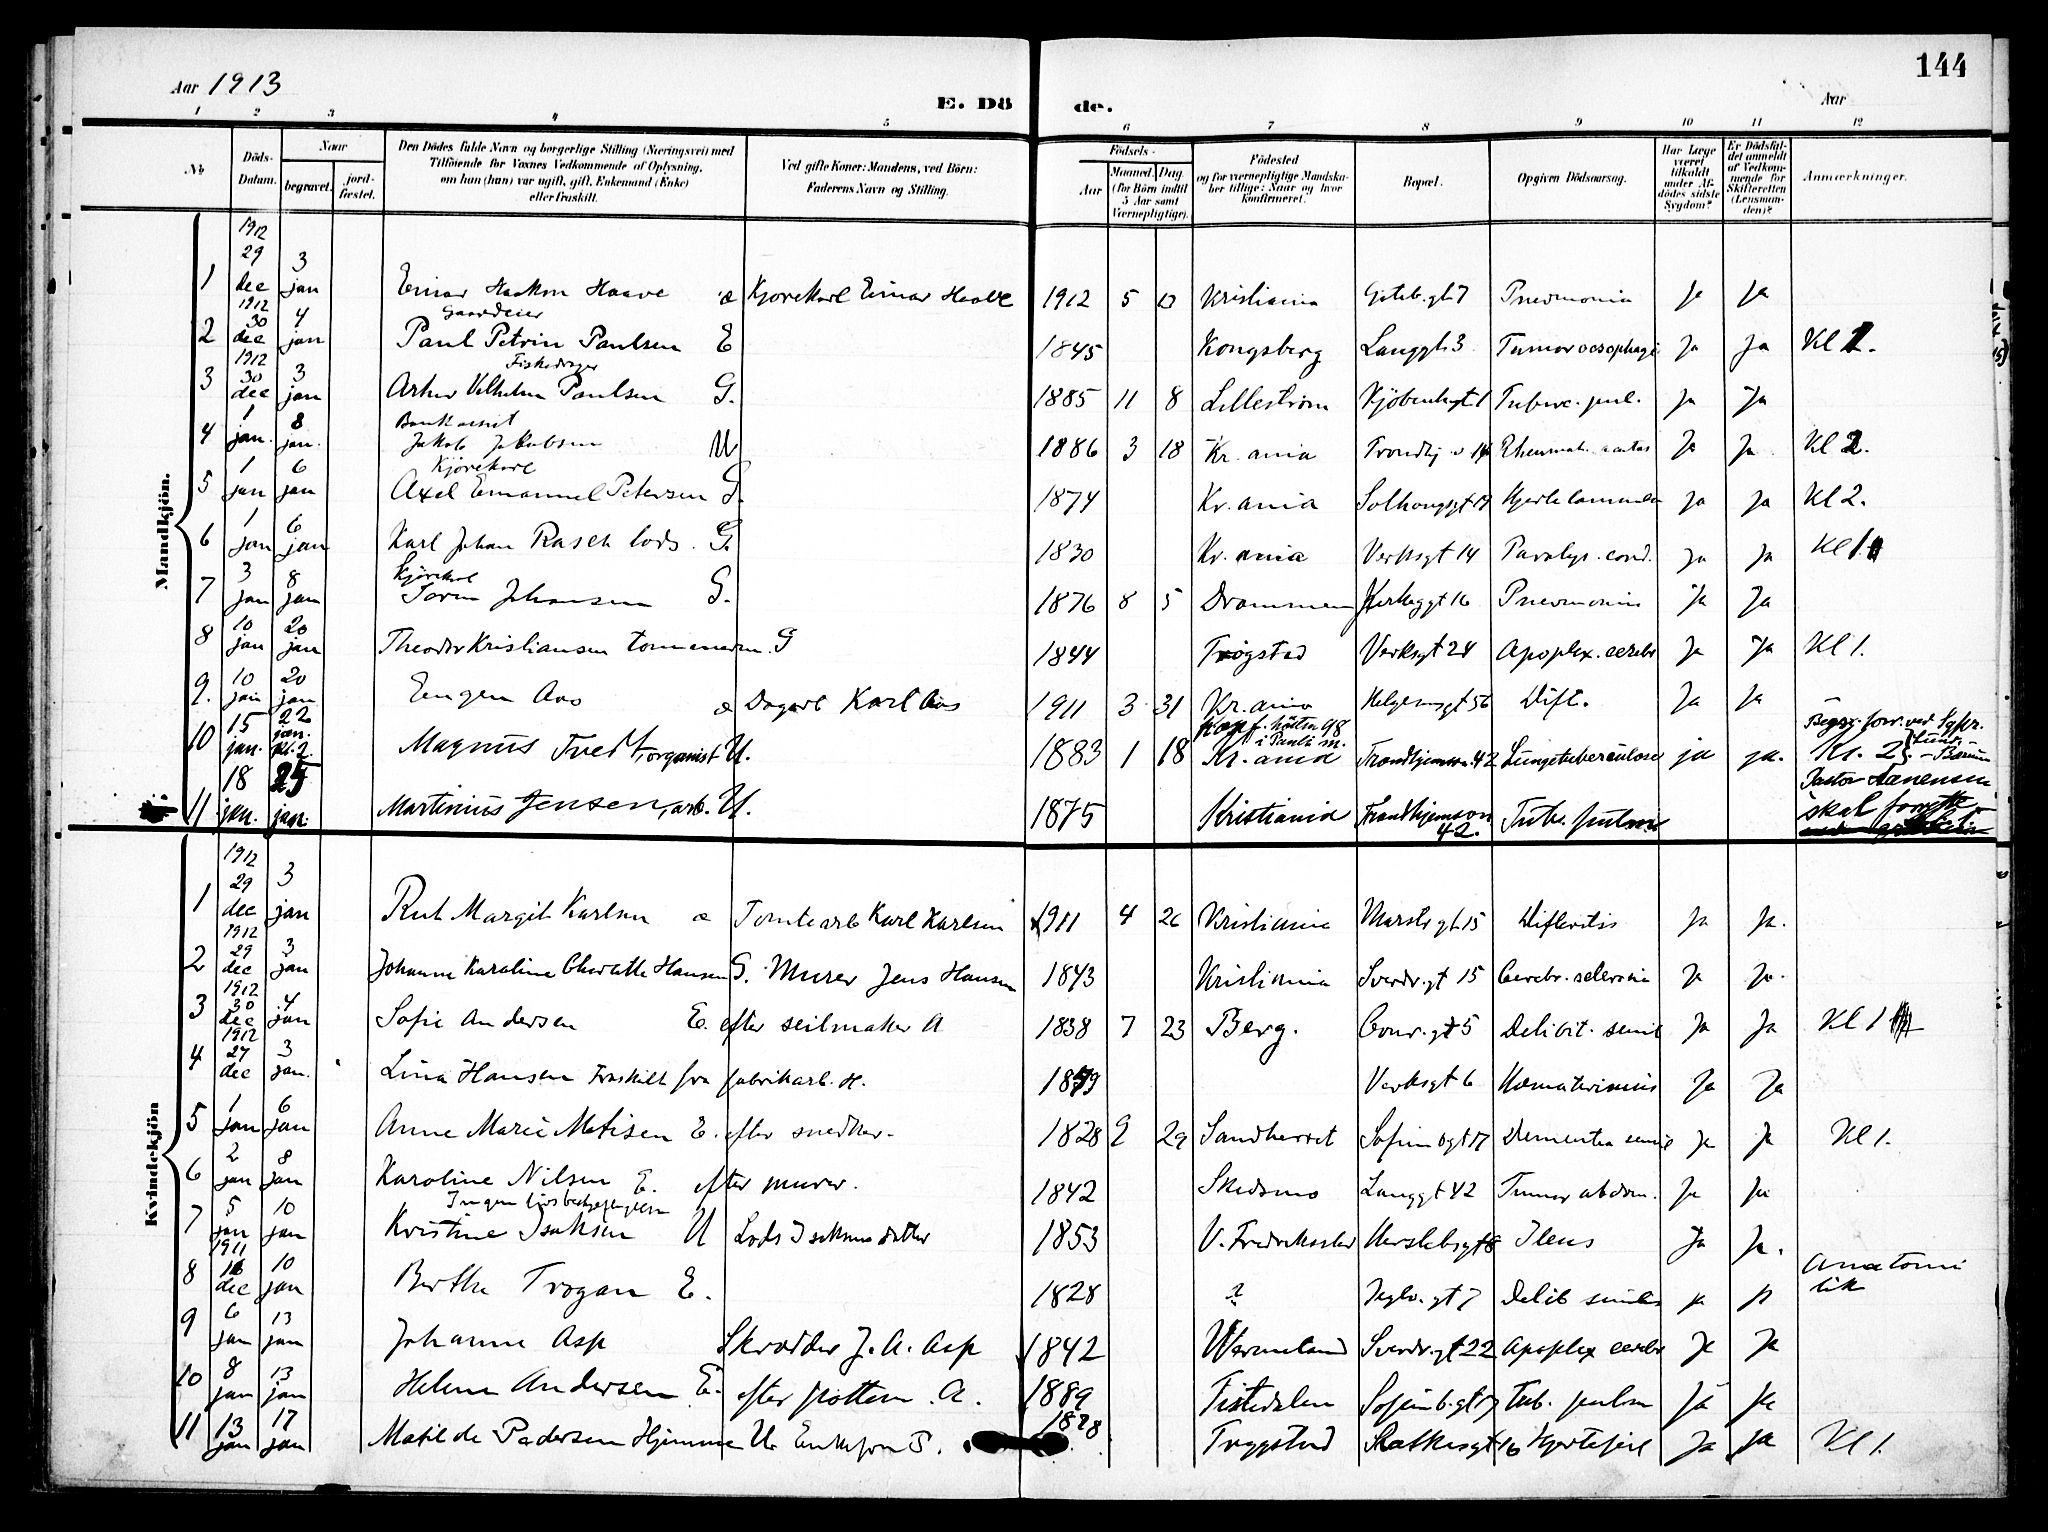 144
Aar 1913
E. Dö
de.
Aar
1 2 3 4 5 6 7 8 9 10 11 12
No
Döds-Datum.
Naar
begravet.
jord-fæstet.
Den Dödes fulde Navn og borgerlige Stilling (Næringsvei) med
Tilföiende for Voxnes Vedkommende af Oplysning,
om han (hun) var ugift, gift, Enkemand (Enke)
eller fraskilt.
Ved gifte Koner: Mandens, ved Börn:
Faderens Navn og Stilling.
Födsels-
Aar
Maaned. Dag.
(for Börn indtil
5 Aar samt
Værnepligtige).
Födested
og for værnepligtige Mandska-
ber tillige: Naar og hvor
konfirmeret.
Bopæl.
Opgiven Dödsaarsag.
Har Læge
været
tilkaldt
under Af-
dödes sidste
Sygdom?
Er Dödsfal-
det anmeldt
af Vedkom-
mende for
Skifteretten
(Lensman-
den)?
Anmærkninger.
Mandkjön.
1 1912 29 dec 3 jan Einar Haakon Haave æ Kjörekarl Einar Haave 1912 5 13 Kristiania Göteb.gt 7 Pneumonia ja ja
Gaardeier
2 1912 30 dec 4 jan Paul Petrin Paulsen E 1845 Kongsberg Langgt 3 Tumor oesophagi Ja Ja Kl 1.
3 1912 30 dec 3 jan Artur Vilhelm Paulsen G. 1885 11 8 Lilleström Kjöbenh.gt 1 Tuberc. pul. Ja Ja
4 1 jan. 8 jan. Jakob Jakobsen U 1886 3 18 Kr.ania Trondhj. v 14 Rheumat. Ja Ja. Kl 2.
Kjörekarl
5 1 jan 6 jan Axel Emanuel Petersen G. 1874 Kr.ania Ja Ja Kl 2.
6 1 jan 6 jan Karl Johan Rasch lods. G. 1830 Kr.ania Verksgt 14 Paralys. cord. Ja Ja Kl 1
Kjörekarl
7 3 jan 8 jan Johansen G. 1876 8 5 Drammen Herleggt 16 Pneumonia Ja Ja
8 10 jan 20 jan Theodor Kristiansen tömmerm. G 1844 Trögstad Verksgt 24 Apoplex. cerebr Ja Ja Kl 1.
9. 10 jan 20 jan Eugen Aas æ Dagarb Karl Aas 1911 3 31 Kr.ania Helgesensgt 56 Dift. Ja Ja
konf. hösten 98
i Pauli m.
10 15 jan. 22 jan. kl. 2 Magnus Tvedt, organist U. 1883 1 18 Kr.ania Trondhjemsv. 42 Lungetuberculose ja ja. Kl. 2
11 18 jan. 25 jan. Martinius Jensen, arb. U. 1875 Kristiania Trondhjemsv 42. Tub. pulm
Pastor Aanensen
skal forrette
Kvindekjön
1 1912 29 dec 3 jan Rut Margit Karlsen æ Tomtearb Karl Karlsen 1911 4 26 Kristiania Markv gt 15 Difteritis Ja Ja.
2 1912 29 dec 3 jan Johanne Karoline Charlotte Hansen G. Murer Jens Hansen 1843 Kristiania Sverdr.gt 15 Cerebr. sclerosis Ja Ja.
3 1912 30 dec 4 jan Sofie Andersen E. efter seilmaker A 1838 7 23 Berg. Conr.gt 5 Debilit. senil Ja Ja Kl 1
4 1912 27 dec 3 jan. Lina Hansen Fraskilt fra fabrikarb. H. Verksgt 6 Ja Ja
5 1 jan 6 jan Anne Marie Matisen E. efter snedker. 1828 9 29 Sandherret Sofienb gt 17 Dementia senil Ja Ja Kl 1.
6 2 jan 8 jan Karoline Nilsen E. efter murer. 1842 Skedsmo Langgt 42 Tumor abdom. Ja Ja
Ingen livsbeskjeftigelse
7 5 jan 10 jan Kristine Isaksen U Lods Isaksens datter 1853 V. Fredrikstad Herslebsgt 8 Ileus Ja Ja.
8 1911 dec 10 jan Berthe Trogan E. 1828 ? Teglv.gt 7 Debil senilis Ja Ja Anatomi lik
9 6 jan 13 jan Johanne Asp Skrædder J. A. Asp 1842 Wärmeland Sverdr.gt 22 Apoplex cerebr Ja Ja
10 8 jan 13 jan Helene Andersen E. efter pottem. A. 1889 Tistedalen Sofienb.gt 17 Tub. pulm Ja Ja
11 13 jan 17 jan Matilde Pedersen Hjemme U. 1878 Tryggstad 16 Hjertefeil Ja Ja Kl 1.